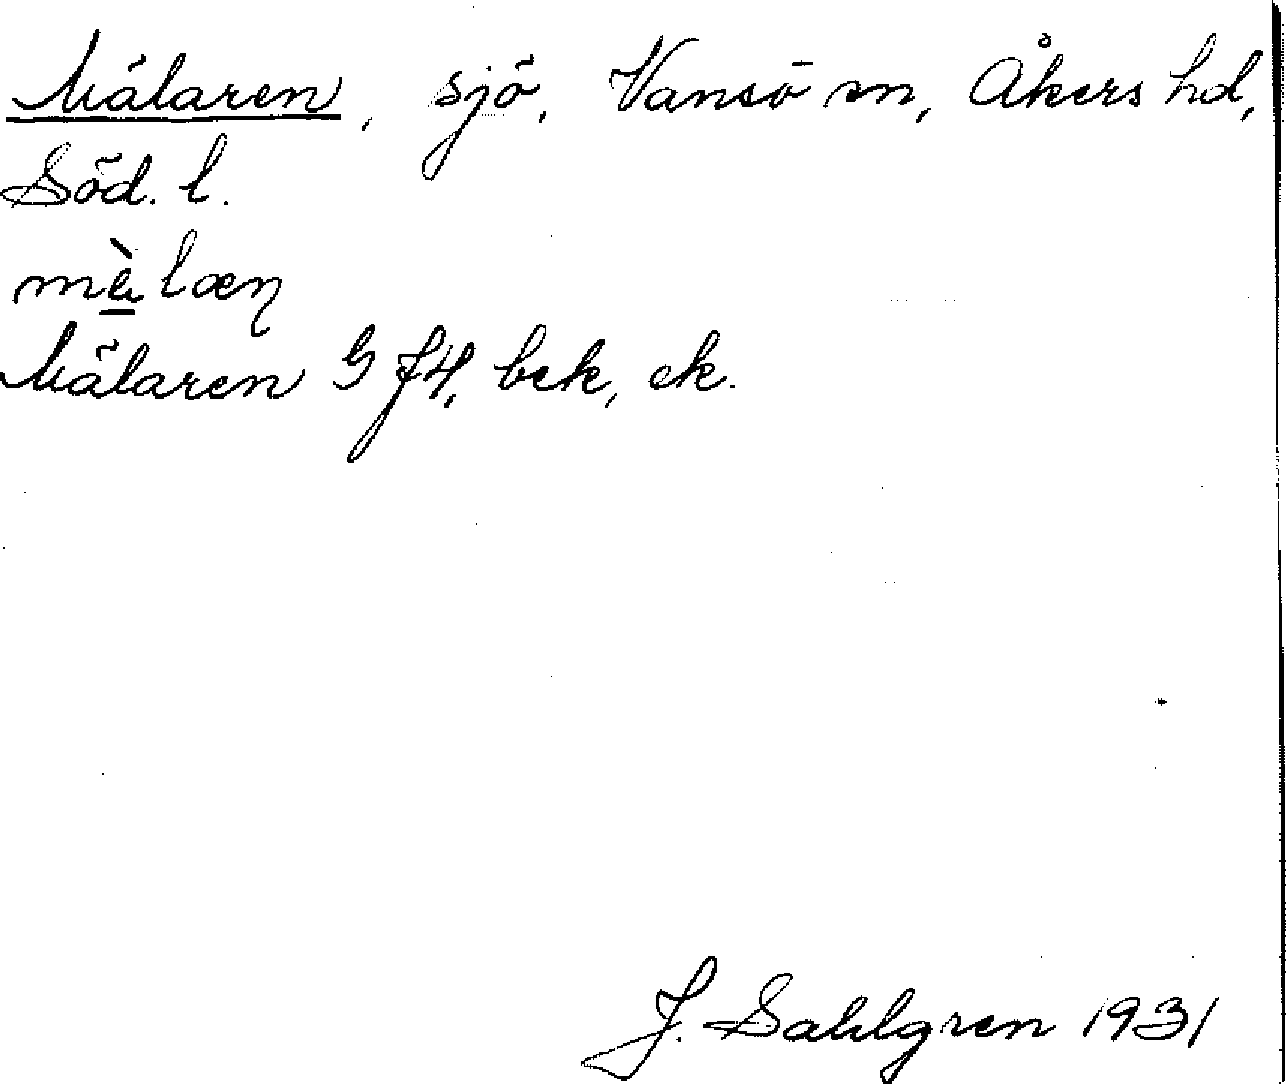 Mälaren, sjö, Vansö sn, Åkers hd,
Söd. l.
Mälaren G f4, bek, ek.
J. Sahlgren 1931